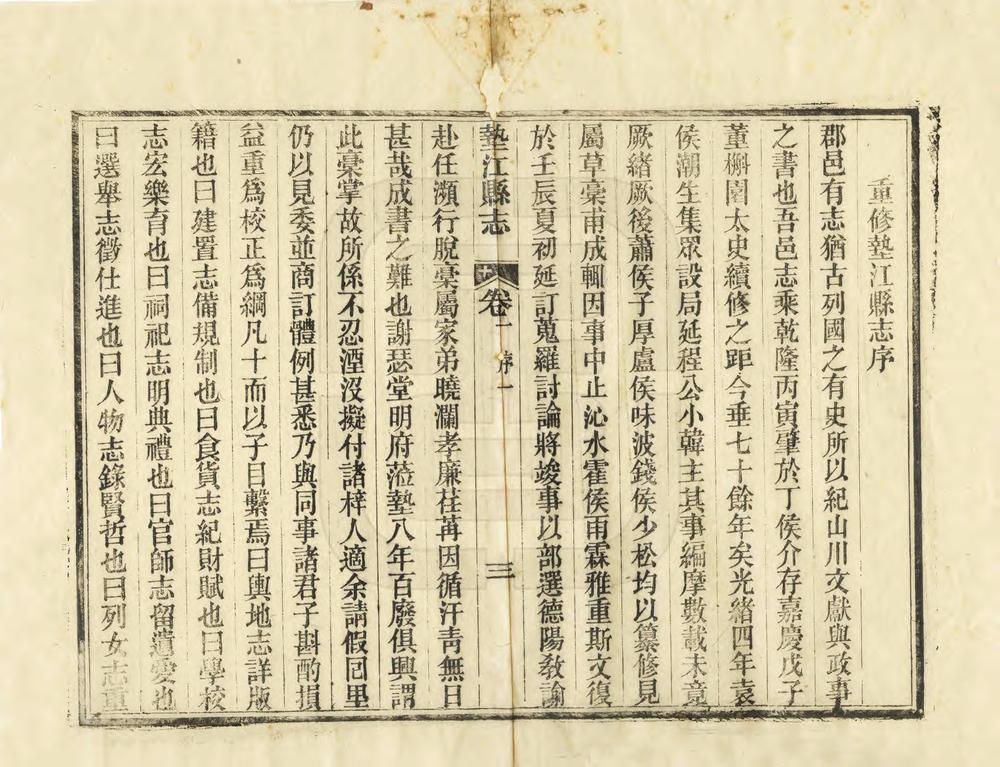 重修墊江縣志序
郡邑有志猶古列國之有史所以紀山川文獻與政事
之書也吾邑志乘乾隆丙寅肇於丁侯介存嘉慶戊子
董槲園太史續修之距今垂七十餘年矣光緒四年袁
侯潮生集眾設局延程公小韓主其事編摩數載未竟
厥緒厥後蕭侯子厚盧侯味波錢侯少松均以纂修見
屬草稾甫成輒因事中止沁水霍侯雨霖雅重斯文復
於壬辰夏初延訂蒐羅討論將竣事以部選德陽敎諭
墊江縣志 卷一 序一 三
赴任瀕行脫稾屬家弟曉瀾孝廉荏苒因循汗靑無日
甚哉成書之難也謝瑟堂明府蒞墊八年百廢俱興謂
此稾掌故所係不忍湮沒擬付諸梓人適余請假囘里
仍以見委並商訂體例甚悉乃與同事諸君子斟酌損
益重爲校正爲綱凡十而以子目繫焉曰輿地志詳版
籍也曰建置志備規制也曰食貨志紀財賦也曰學校
志宏樂育也曰祠祀志明典禮也曰官師志留遺愛也
曰選舉志徵仕進也曰人物志錄賢哲也曰列女志重